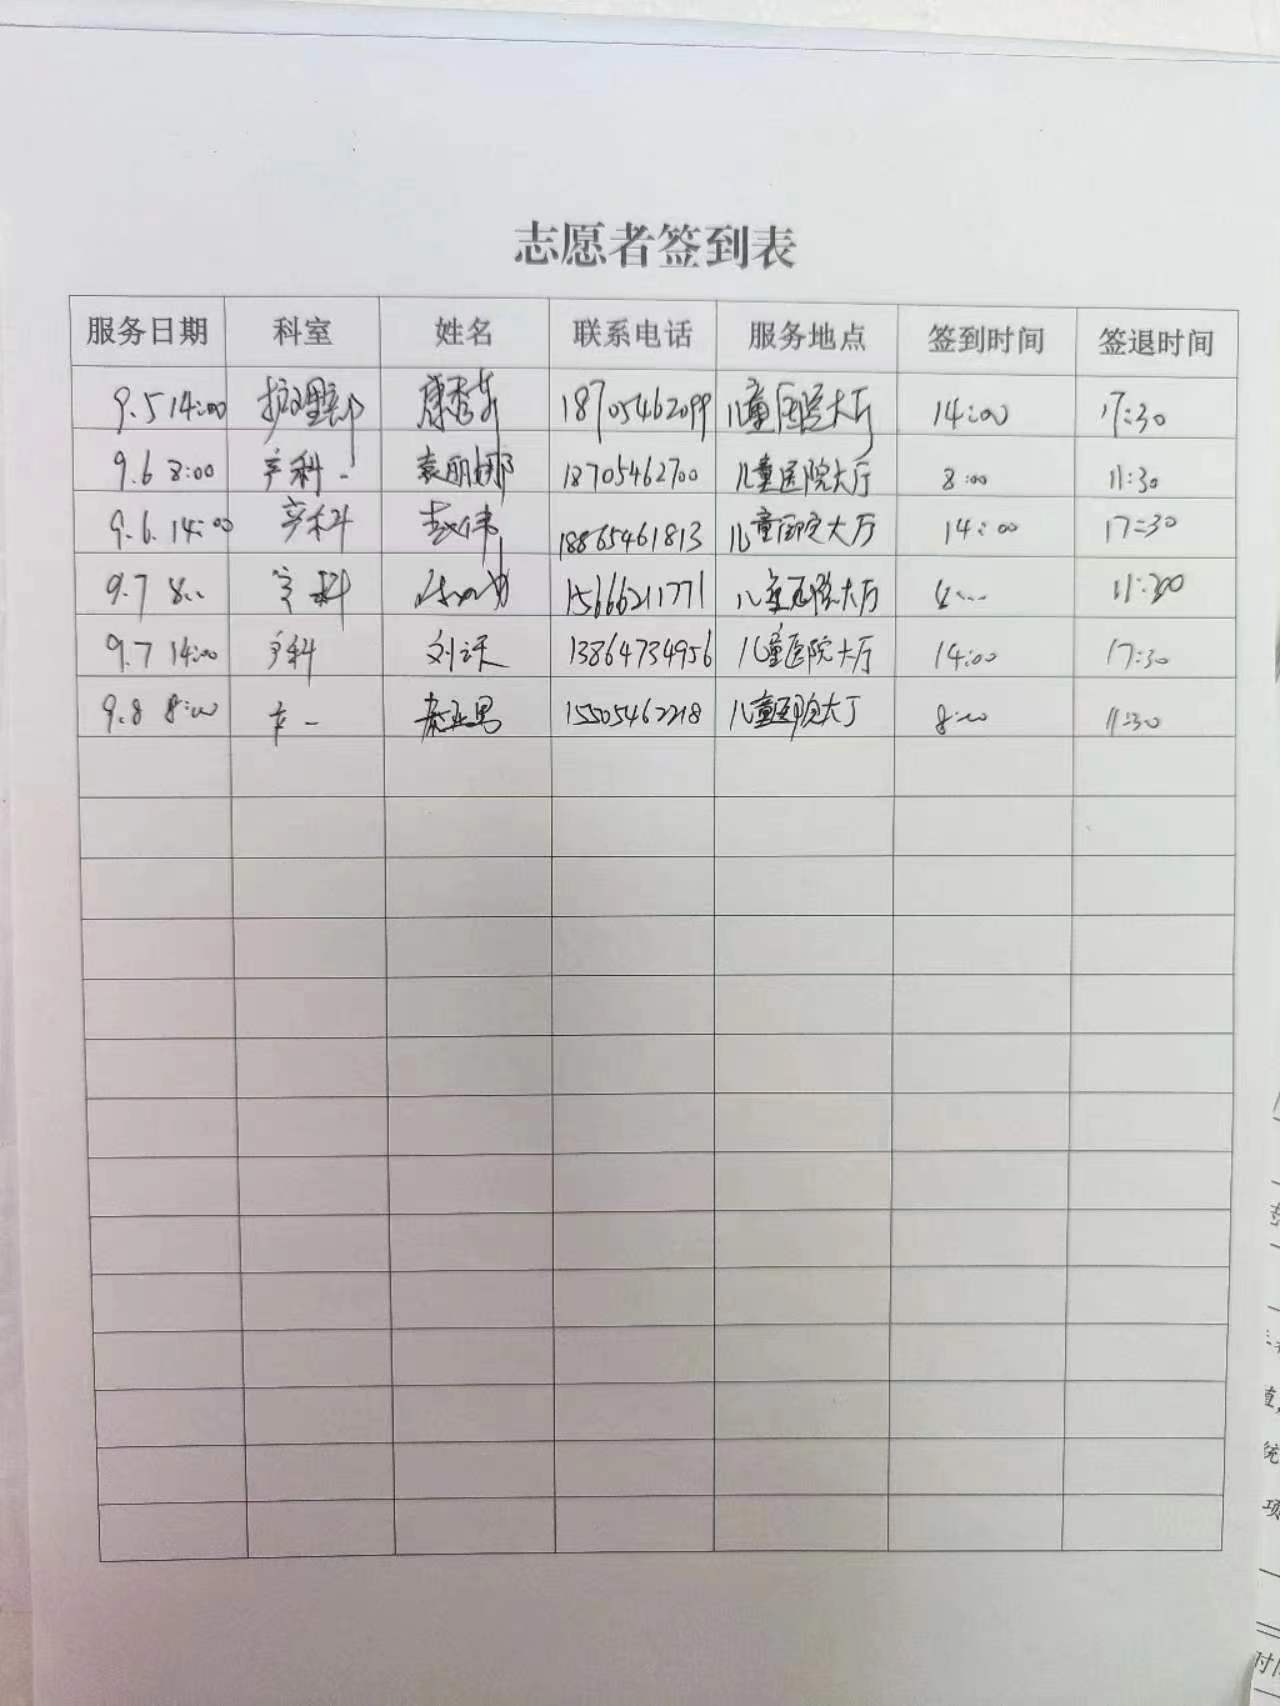 志愿者签到表
服务日期 科室 姓名 联系电话 服务地点 签到时间 签退时间
9.5 14:00 护理部 康秀 18705462099 儿童医院大厅 14:00 17:30
9.6 8:00 产科一 袁丽娜 18705462700 儿童医院大厅 8:00 11:30
9.6. 14:00 产科 赵伟 18865461813 儿童医院大厅 14:00 17:30
9.7 8:00 产科 15666211771 儿童医院大厅 11:30
9.7 14:00 产科 刘 13864734956 儿童医院大厅 14:00 17:30
9.8 8:00 产一 秦亚男 15505462218 儿童医院大厅 8:00 11:30
统
项